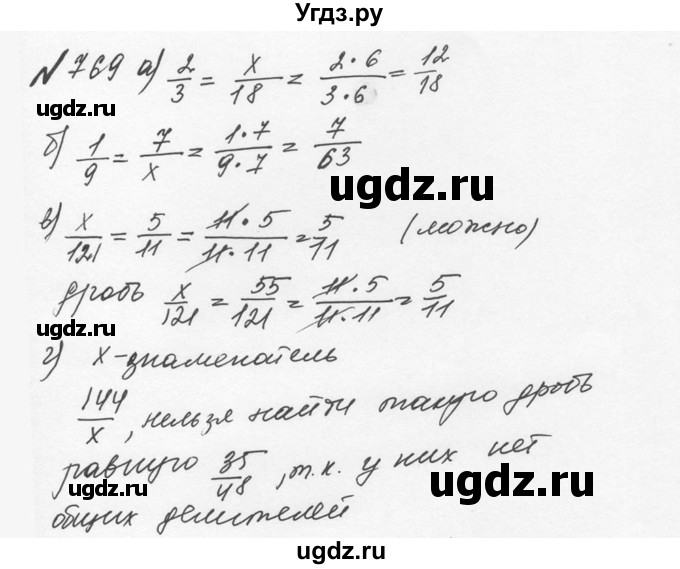 Угдз.ру
№769 а) 2/3 = x/18 = 2·6/3·6 = 12/18
ugdz.ru
б) 1/9 = 7/x = 1·7/9·7 = 7/63
ugdz.ru
в) x/121 = 5/11 = 11·5/11·11 = 5/11 (можно)
ugdz.ru
дробь x/121 = 55/121 = 11·5/11·11 = 5/11
ugdz.ru ugdz.ru
г) x-знаменатель
144/x, нельзя найти такую дробь
равную 35/48, т.к. у них нет
ugdz.ru ugdz.ru
общих делителей
ugdz.ru